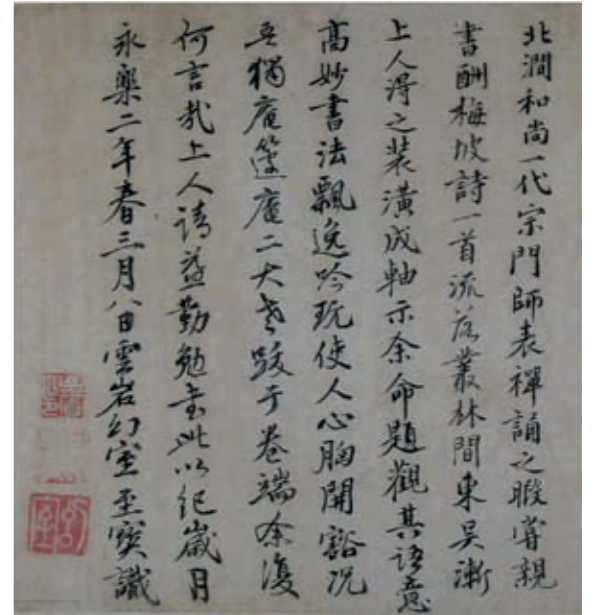 北澗和尚一代宗門師表禪誦之暇嘗親
書酬梅坡詩一首流落叢林間東吳漸
上人得之裝潢成軸示余命題觀其語意
高妙書法飄逸吟玩使人心胸開豁況
吾猶庵蘧庵二大老跋于卷端余復
何言哉上人請益勤勉書此以紀歲月
永樂二年春三月八日雲岩幻室至寶識